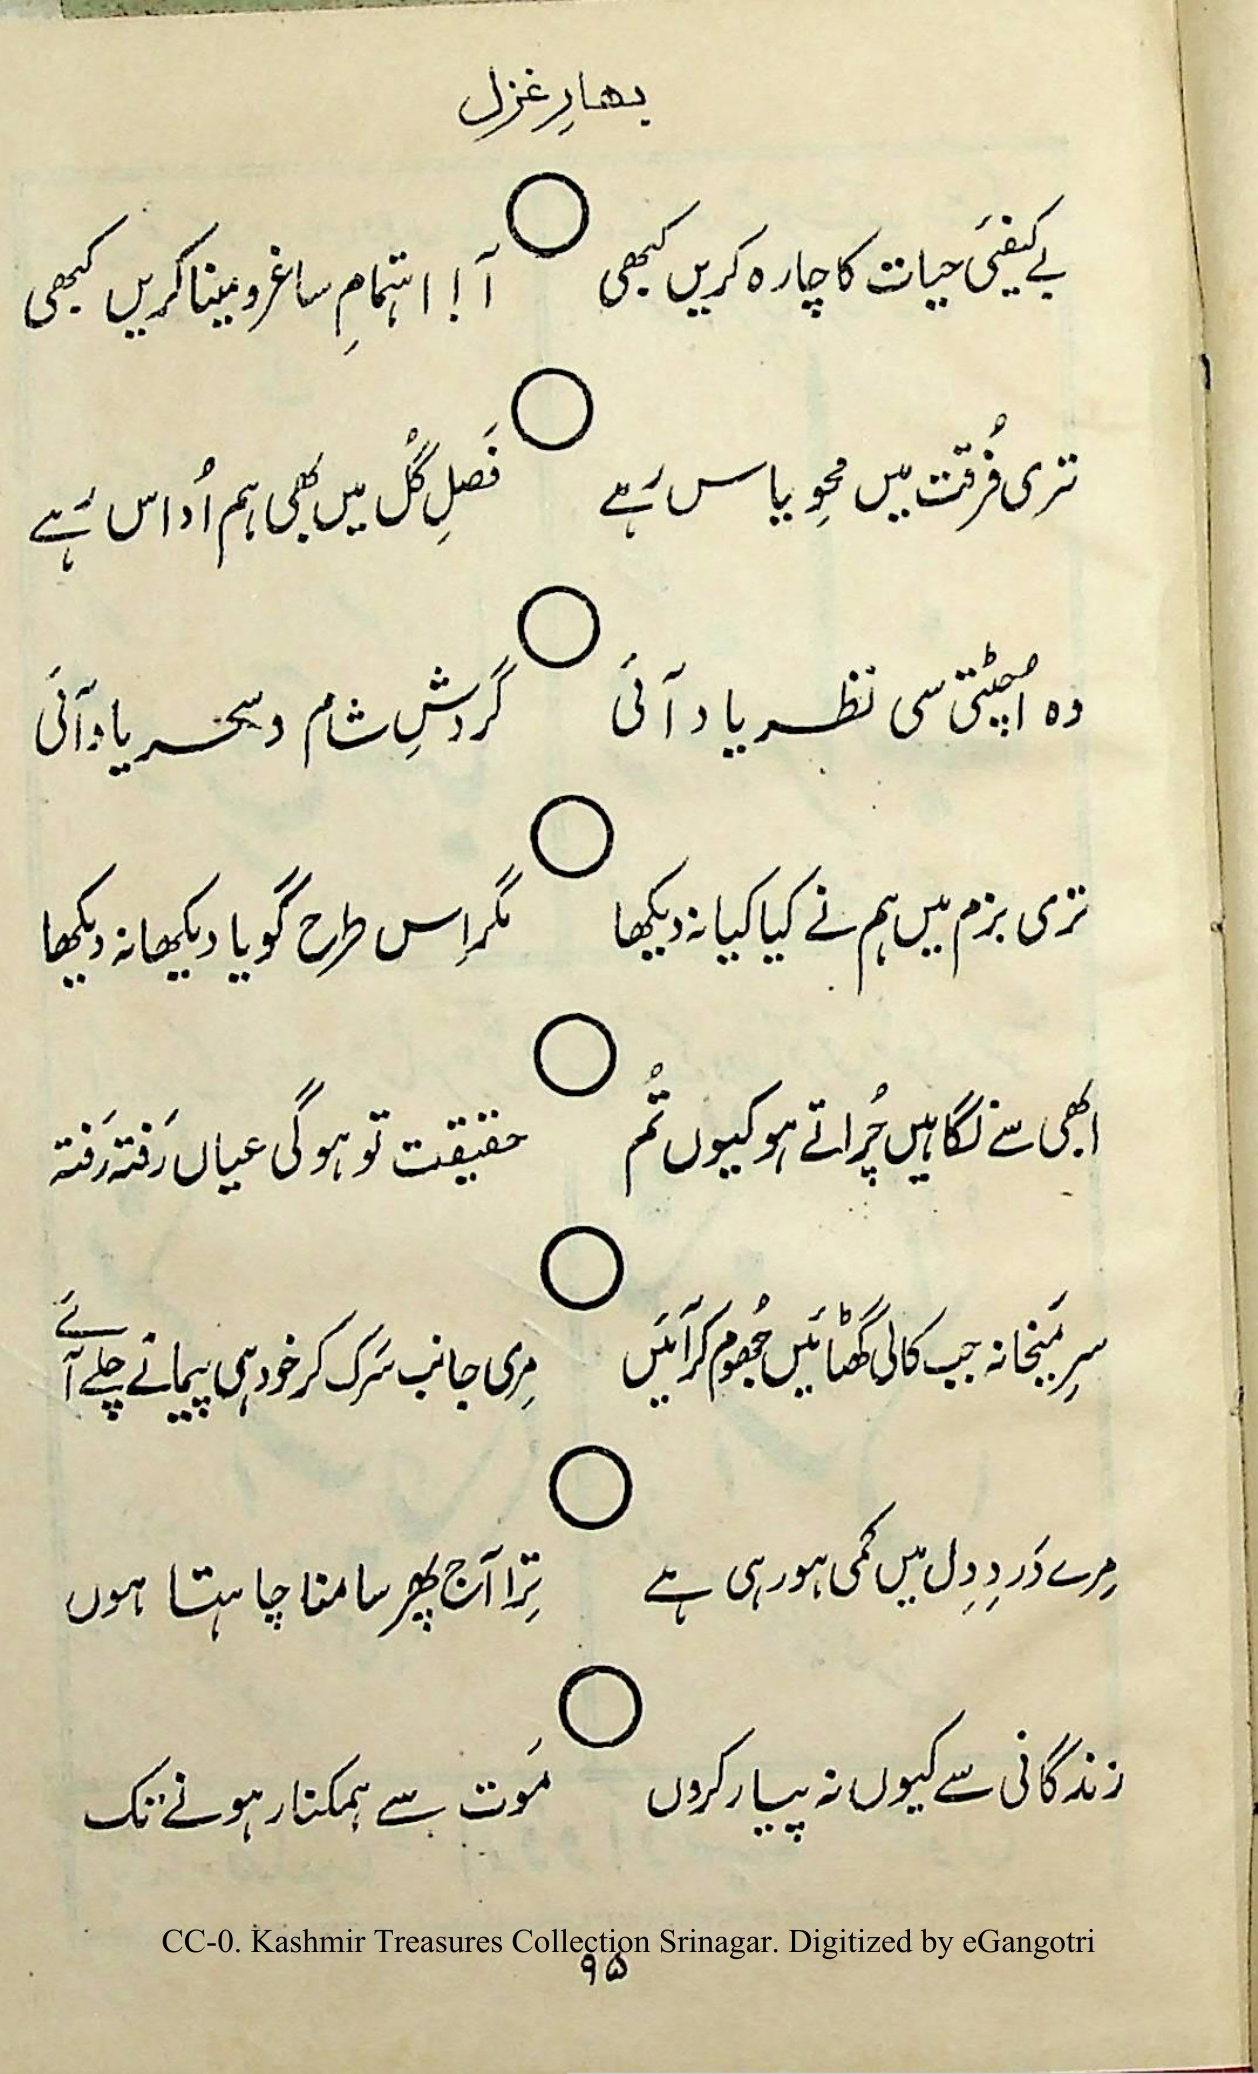 بہارِ غزل
بے کیفیَٔ حیات کا چارہ کریں کبھی آ! اہتمامِ ساغر و مینا کریں کبھی
تری فُرقت میں محوِ یاس رَہے فَصلِ گُل میں بھی ہم اُداس رَہے
وہ اُچٹتی سی نظر یاد آئی گَردشِ شام و سحر یاد آئی
تری بزم میں ہم نے کیا کیا نہ دیکھا مگر اِس طرح گویا دیکھا نہ دیکھا
ابھی سے نگاہیں چُراتے ہو کیوں تُم حقیقت تو ہوگی عیاں رَفتہ رَفتہ
سرِ مَیخانہ جب کالی گَھٹائیں جُھوم کر آئیں مِری جانب سَرک کر خود ہی پیمانے چلے آئے
مِرے دَردِ دِل میں کمی ہو رہی ہے تِرا آج پھر سامنا چاہتا ہوں
زندگانی سے کیوں نہ پیار کروں مَوت سے ہمکنار ہونے تک
CC-0. Kashmir Treasures Collection Srinagar. Digitized by eGangotri
۹۵